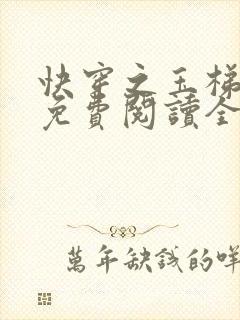 快穿之玉梯
免費閱讀全
萬年缺錢的咩